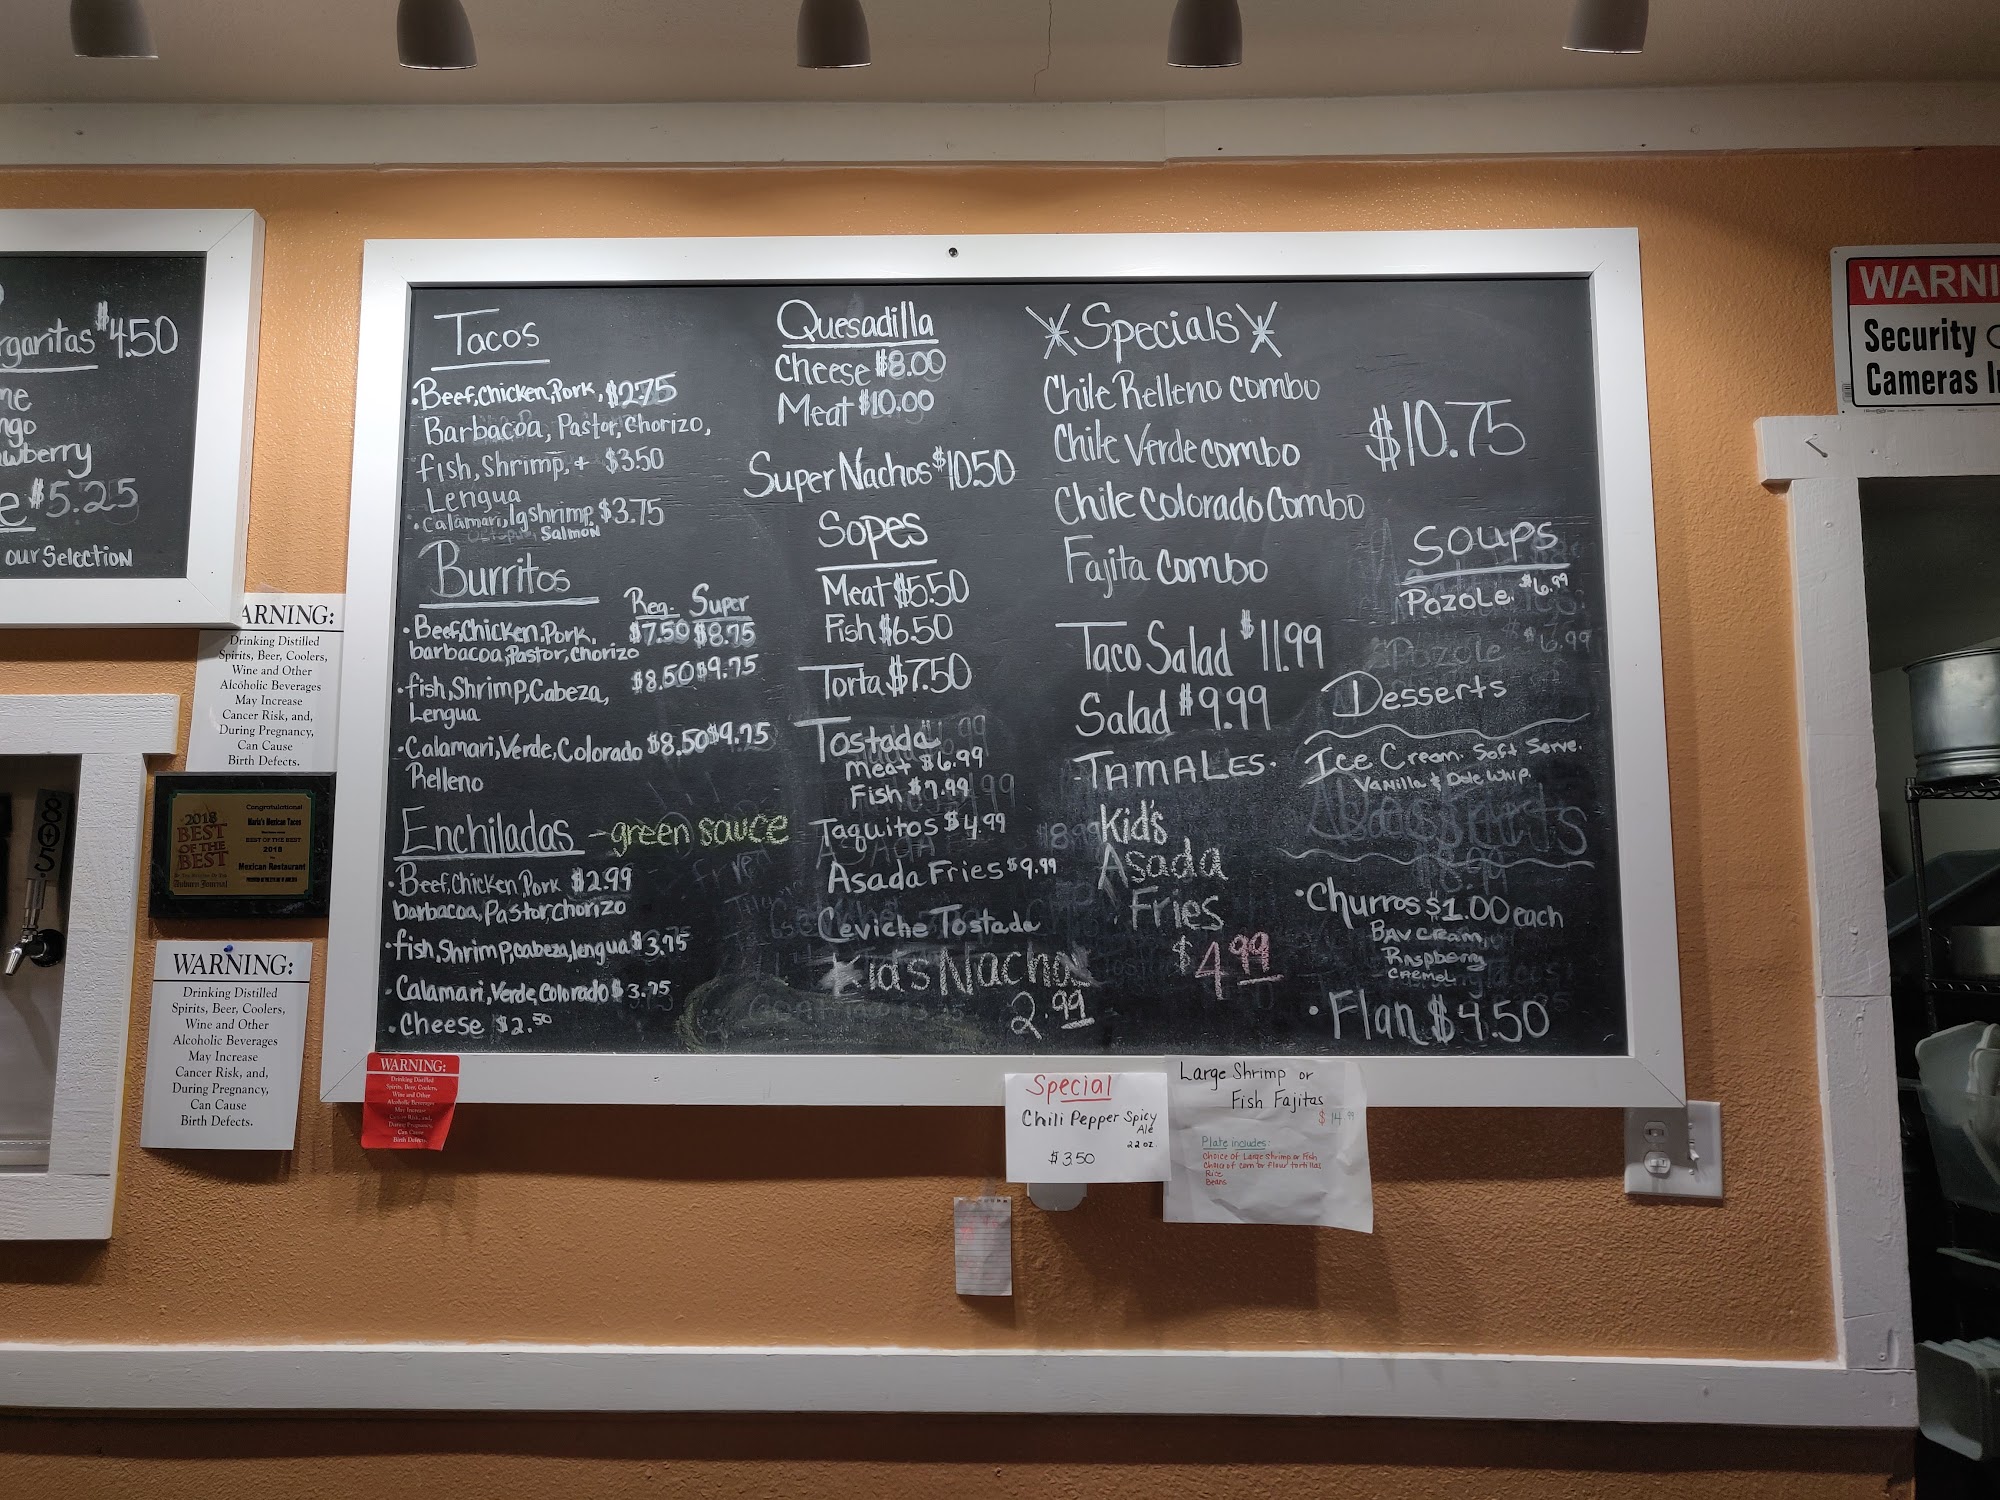 rgaritas $4.50
me
ngo
wberry
e $5.25
our Selection
ARNING:
Drinking Distilled
Spirits, Beer, Coolers,
Wine and Other
Alcoholic Beverages
May Increase
Cancer Risk, and,
During Pregnancy,
Can Cause
Birth Defects.
805
2018
BEST
OF THE
BEST
Auburn Journal
Congratulations!
Maria's Mexican Tacos
BEST OF THE BEST
2018
Mexican Restaurant
WARNING:
Drinking Distilled
Spirits, Beer, Coolers,
Wine and Other
Alcoholic Beverages
May Increase
Cancer Risk, and,
During Pregnancy,
Can Cause
Birth Defects.
WARNING:
Drinking Distilled
Spirits, Beer, Coolers,
Wine and Other
Alcoholic Beverages
May Increase
Cancer Risk, and,
During Pregnancy,
Can Cause
Birth Defects.
Tacos
• Beef, Chicken, Pork, $2.75
Barbacoa, Pastor, Chorizo,
fish, Shrimp, + $3.50
Lengua
• Calamari, lg shrimp $3.75
Octopus, Salmon
Burritos
Reg. Super
• Beef, Chicken, Pork, $7.50 $8.75
barbacoa, Pastor, Chorizo
• fish, Shrimp, Cabeza, $8.50 $9.75
Lengua
• Calamari, Verde, Colorado $8.50 $9.75
Relleno
Enchiladas - green sauce
• Beef, Chicken Pork $2.99
barbacoa, Pastor, Chorizo
• fish, Shrimp, cabeza, lengua $3.75
• Calamari, Verde, Colorado $3.75
• Cheese $2.50
Quesadilla
Cheese $8.00
Meat $10.00
Super Nachos $10.50
Sopes
Meat $5.50
Fish $6.50
Torta $7.50
Tostada
meat $6.99
Fish $7.99
Taquitos $4.99
Asada Fries $9.99
Ceviche Tostada
Kid's Nachos
2.99
*Specials*
Chile Relleno combo
Chile Verde combo
$10.75
Chile Colorado Combo
Fajita Combo
Taco Salad $11.99
Salad $9.99
- TAMALES -
Kid's
Asada
Fries
$4.99
Soups
Pozole $6.99
Pozole $6.99
Desserts
Ice Cream. Soft Serve.
Vanilla & Dole Whip
• Churros $1.00 each
BAV Cream,
Raspberry
Caramel
• Flan $4.50
Special
Chili Pepper Spicy
Ale
22 oz.
$3.50
Large Shrimp or
Fish Fajitas
$14.99
Plate includes:
Choice of Large Shrimp or Fish
Choice of corn or flour tortillas
Rice
Beans
WARNI
Security
Cameras I